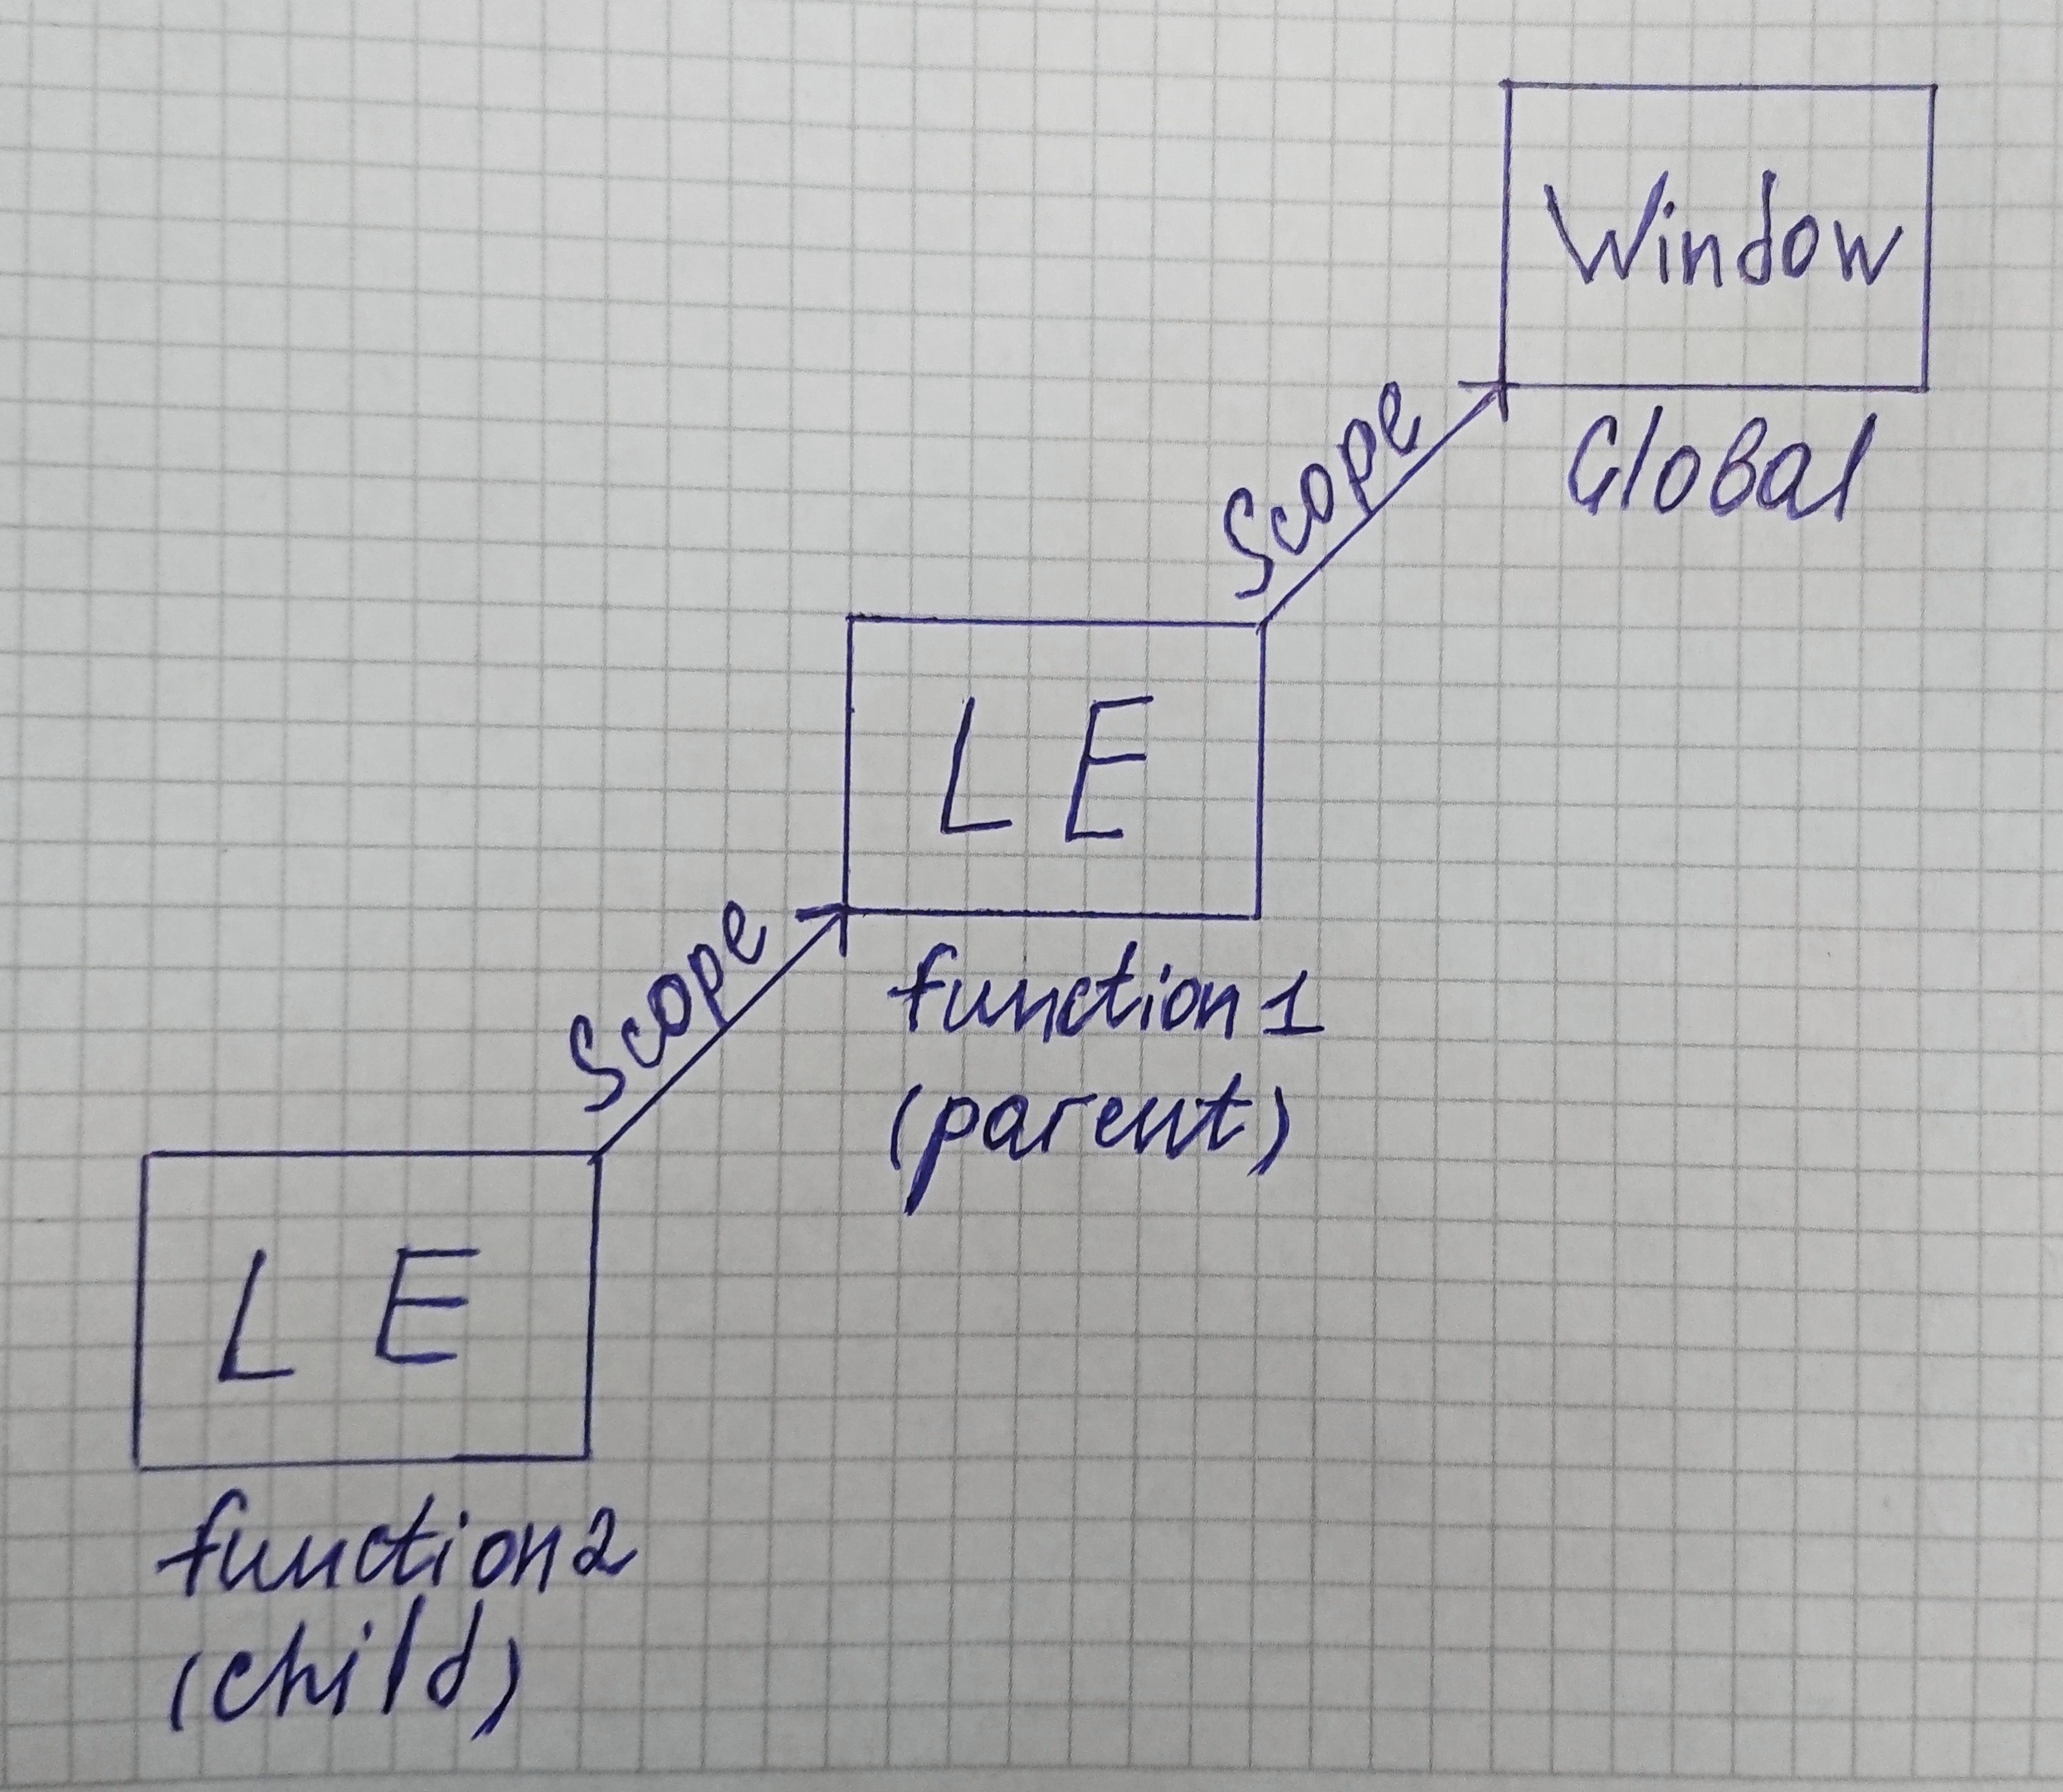 Window
Global
Scope
L E
function1
(parent)
Scope
L E
function2
(child)